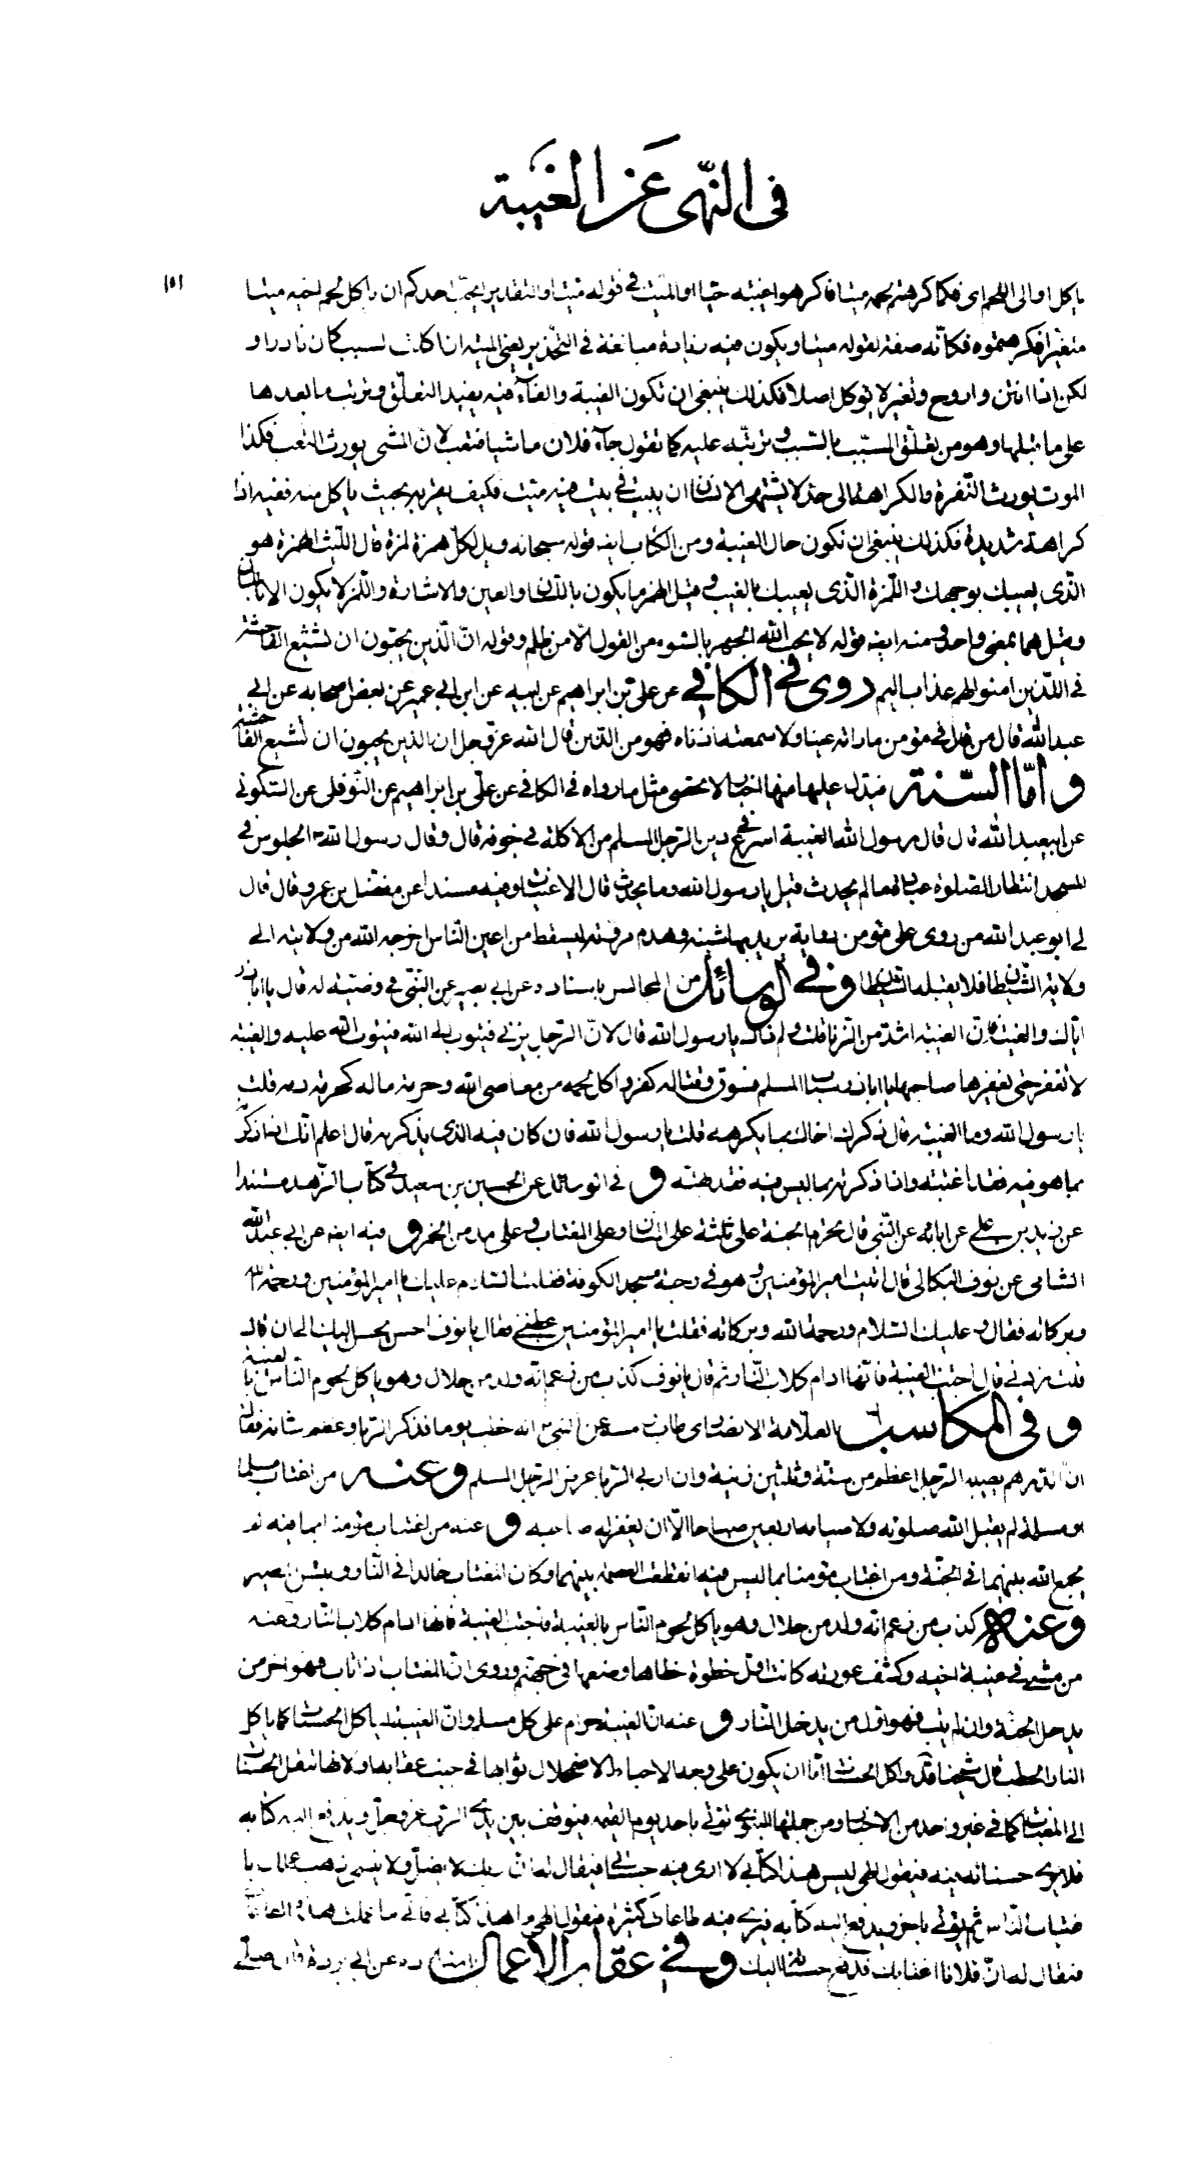 فى النّهى عن الغيبة
١٥١
ياكل او الى اللحم اى فكما كرهتم لحمه ميتا فاكرهوا غيبته حيّا او الميّت فى قوله ميتا و التقدير ايحبّ احدكم ان ياكل لحم اخيه ميتا
متغيّرا فكرهتموه فكانّه صفة لقوله ميتا و يكون فيه زيادة مبالغة فى التحذير يعنى الميتة ان اكلت لسبب كان نادرا و
لكن اذا انتن و اروح و تغير لا يؤكل اصلا فكذلك ينبغى ان تكون الغيبة و الفآء فيه يفيد التعلّق و ترتب ما بعدها
على ما قبلها و هو من تعلّق المسبّب بالسّبب و ترتبه عليه كما تقول جآء فلان ماشيا فتعب لانّ المشى يورث التعب فكذا
الموت يورث النّفرة و الكراهة الى حدّ لا يشتهى الانسان ان يبيت فى بيت فيه ميّت فكيف يقربه بحيث ياكل منه ففيه اذا
كراهة شديدة فكذلك ينبغى ان تكون حال الغيبة و من الكتاب ايضا قوله سبحانه ويل لكلّ همزة لمزة قال اللّيث الهمزة هو
الّذى يعيبك بوجهك و اللّمزة الّذى يعيبك بالغيب و قيل الهمز ما يكون باللّسان و العين و الاشارة و اللّمز لا يكون الا باللّسان
و قيل هما بمعنى واحد و منه ايضا قوله لا يحبّ الله الجهر بالسّوء من القول الّا من ظلم و قوله انّ الّذين يحبّون ان تشيع الفاحشة
فى الّذين امنوا لهم عذاب اليم روى فى الكافى عن على بن ابراهيم عن ابيه عن ابن ابى عمير عن بعض اصحابه عن ابى
عبد الله قال من قال فى مؤمن ما راته عيناه و لا سمعته اذناه فهو من الذين قال الله عزّ و جل ان الذين يحبون ان تشيع الفاحشة
و امّا السّنة فيدل عليها منها اخبار لا تحصى مثل ما رواه فى الكافى عن علىّ بن ابراهيم عن النّوفلى عن السّكونى
عن ابيعبد الله قال قال رسول الله الغيبة اسرع فى دين الرّجل المسلم من الاكلة فى جوفه قال و قال رسول الله الجلوس فى
المسجد انتظار الصّلوة عبادة ما لم يحدث قيل يا رسول الله و ما يحدث قال الاغتياب و فيه مسندا عن مفضّل بن عمرو قال قال
لى ابو عبد الله من روى على مؤمن رواية يريد بها شينه و هدم مروّته ليسقط من اعين النّاس اخرجه الله من ولايته الى
ولاية الشّيطان فلا يقبله الشّيطان و فى الوسائل من المجالس باسناده عن ابى بصير عن النبّى فى وصيّته له قال يا اباذر
ايّاك و الغيبة فانّ الغيبة اشدّ من الزّنا قلت و لم ذاك يا رسول الله قال لانّ الرّجل يزنى فيتوب الى الله فيتوب الله عليه و الغيبة
لا تغفر حتى يغفرها صاحبها يا اباذر سباب المسلم فسوق و قتاله كفر و اكل لحمه من معاصى الله و حرمة ماله كحرمة دمه قلت
يا رسول الله و ما الغيبة قال ذكرك اخاك بما يكرهه قلت يا رسول الله فان كان فيه الذى يذكر به قال اعلم انّك اذا ذكرته
بما هو فيه فقد اغتبته و اذا ذكرته بما ليس فيه فقد بهتّه و فى الوسائل عن الحسين بن سعيد فى كتاب الزّهد مسندا
عن زيد بن على عن ابائه عن النّبى قال تحرم الجنة على ثلثة على المنّان و على المغتاب و على مدمن الخمر و فيه ايضا عن ابى عبد الله
الشامى عن نوف البكالى قال اتيت امير المؤمنين و هو فى رحبة مسجد الكوفة فقلت السّلام عليك يا امير المؤمنين و رحمة الله
و بركاته فقال و عليك السّلام و رحمة الله و بركاته فقلت يا امير المؤمنين عظنى فقال يا نوف احسن يحسن اليك الى ان قال
قلت زدنى قال اجتنب الغيبة فانّها ادام كلاب النّار ثم قال يا نوف كذب من زعم انّه ولد من حلال و هو ياكل لحوم النّاس بالغيبة
و فى المكاسب للعلّامة الانصارى طاب رمسه عن النبىّ انه خطب يوما فذكر الرّبا و عظم شانه فقال
انّ الدّرهم يصيبه الرّجل اعظم من ستّة و ثلثين زنية و ان اربى الرّبا عرض الرّجل المسلم و عنه من اغتاب مسلما
او مسلمة لم يقبل الله صلوته و لا صيامه اربعين صباحا الّا ان يغفر له صاحبه و عنه من اغتاب مؤمنا بما فيه لم
يجمع الله بينهما فى الجنّة و من اغتاب مؤمنا بما ليس فيه انقطعت العصمة بينهما و كان المغتاب خالدا فى النّار و بئس المصير
و عنه كذب من زعم انّه ولد من حلال و هو ياكل لحوم النّاس بالغيبة فاجتنب الغيبة فانها ادام كلاب النّار و عنه
من مشى فى غيبة اخيه و كشف عورته كانت اوّل خطوة خطاها وضعها فى جهنّم و روى انّ المغتاب اذا تاب فهو اخر من
يدخل الجنّة و ان لم يتب فهو اوّل من يدخل النّار و عنه انّ الغيبة حرام على كل مسلم و انّ الغيبة لياكل الحسنات كما ياكل
النار الحطب قال شيخنا قدّه و اكل الحسنات امّا ان يكون على وجه الاحباط لاضمحلال ثوابها فى جنب عقابه او لانّها تنقل الحسنات
الى المغتاب كما فى غير واحد من الاخبار و من جملتها النبوى يؤتى باحد يوم القيمة فيوقف بين يدى الرّب عزّ و جلّ و يدفع اليه كتابه
فلا يرى حسناته فيه فيقول الهى ليس هذا كتابى لا ارى فيه حسناتى فيقال له انّ ربّك لا يضلّ و لا ينسى ذهب عملك با
غتياب النّاس ثم يؤتى باخر و يدفع اليه كتابه فيرى فيه طاعات كثيرة فيقول الهى ما هذا كتابى فانّى ما عملت هذه الطاعات
فيقال له انّ فلانا اغتابك فدفع حسناته اليك و فى عقاب الاعمال باسناده عن ابى بردة قال صلّى